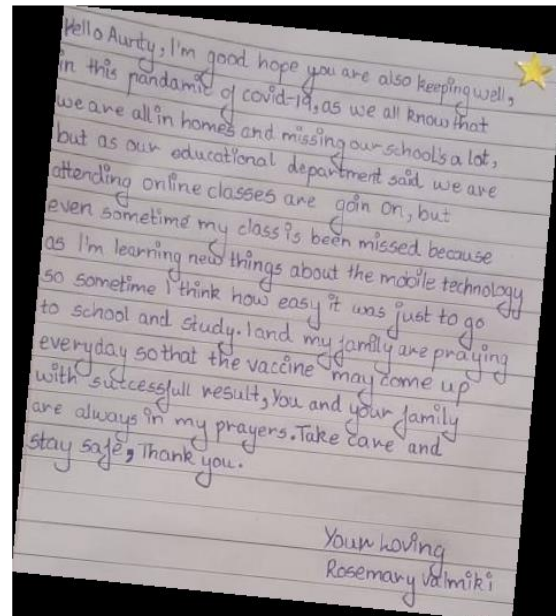 Hello Aunty, I'm good hope you are also keeping well,
in this pandamic of covid-19, as we all know that
we are all in homes and missing our school's a lot,
but as our educational department said we are
attending online classes are goin on, but
even sometime my class is been missed because
as I'm learning new things about the mobile technology
so sometime I think how easy it was just to go
to school and study. I and my family are praying
everyday so that the vaccine may come up
with successfull result, You and your family
are always in my prayers. Take care and
stay safe, Thank you.
Your Loving
Rosemary Valmiki